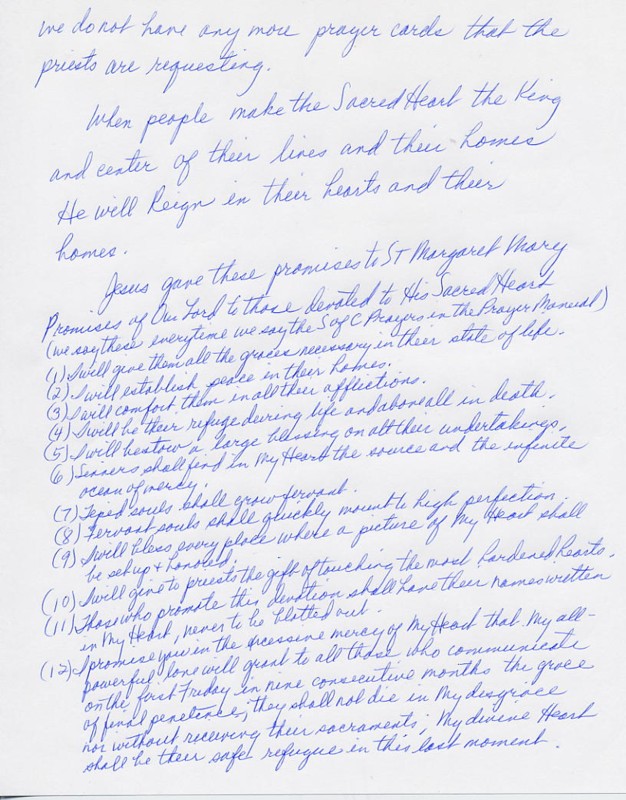 we do not have any more prayer cards that the
priests are requesting.
When people make the Sacred Heart the King
and center of their lives and their homes
He will Reign in their hearts and their
homes.
Jesus gave these promises to ST Margaret Mary
Promises of Our Lord to those devoted to His Sacred Heart
(we say these everytime we say the S of C Prayers in the Prayer Manual)
(1) I will give them all the graces necessary in their state of life.
(2) I will establish peace in their homes.
(3) I will comfort them in all their afflictions.
(4) I will be their refuge during life and above all in death.
(5) I will bestow a large blessing on all their undertakings.
(6) Sinners shall find in My Heart the source and the infinite
ocean of mercy.
(7) Tepid souls shall grow fervant.
(8) Fervant souls shall quickly mount to high perfection.
(9) I will bless every place where a picture of My Heart shall
be set up & honored.
(10) I will give to priests the gift of touching the most hardened hearts.
(11) Those who promote this devotion shall have their names written
in My Heart, never to be blotted out.
(12) I promise you in the excessive mercy of My Heart that My all-
powerful love will grant to all those who communicate
on the first Friday in nine consecutive months the grace
of final penetance; they shall not die in My disgrace
nor without receiving their sacraments; My divine Heart
shall be their safe refugue in this last moment.